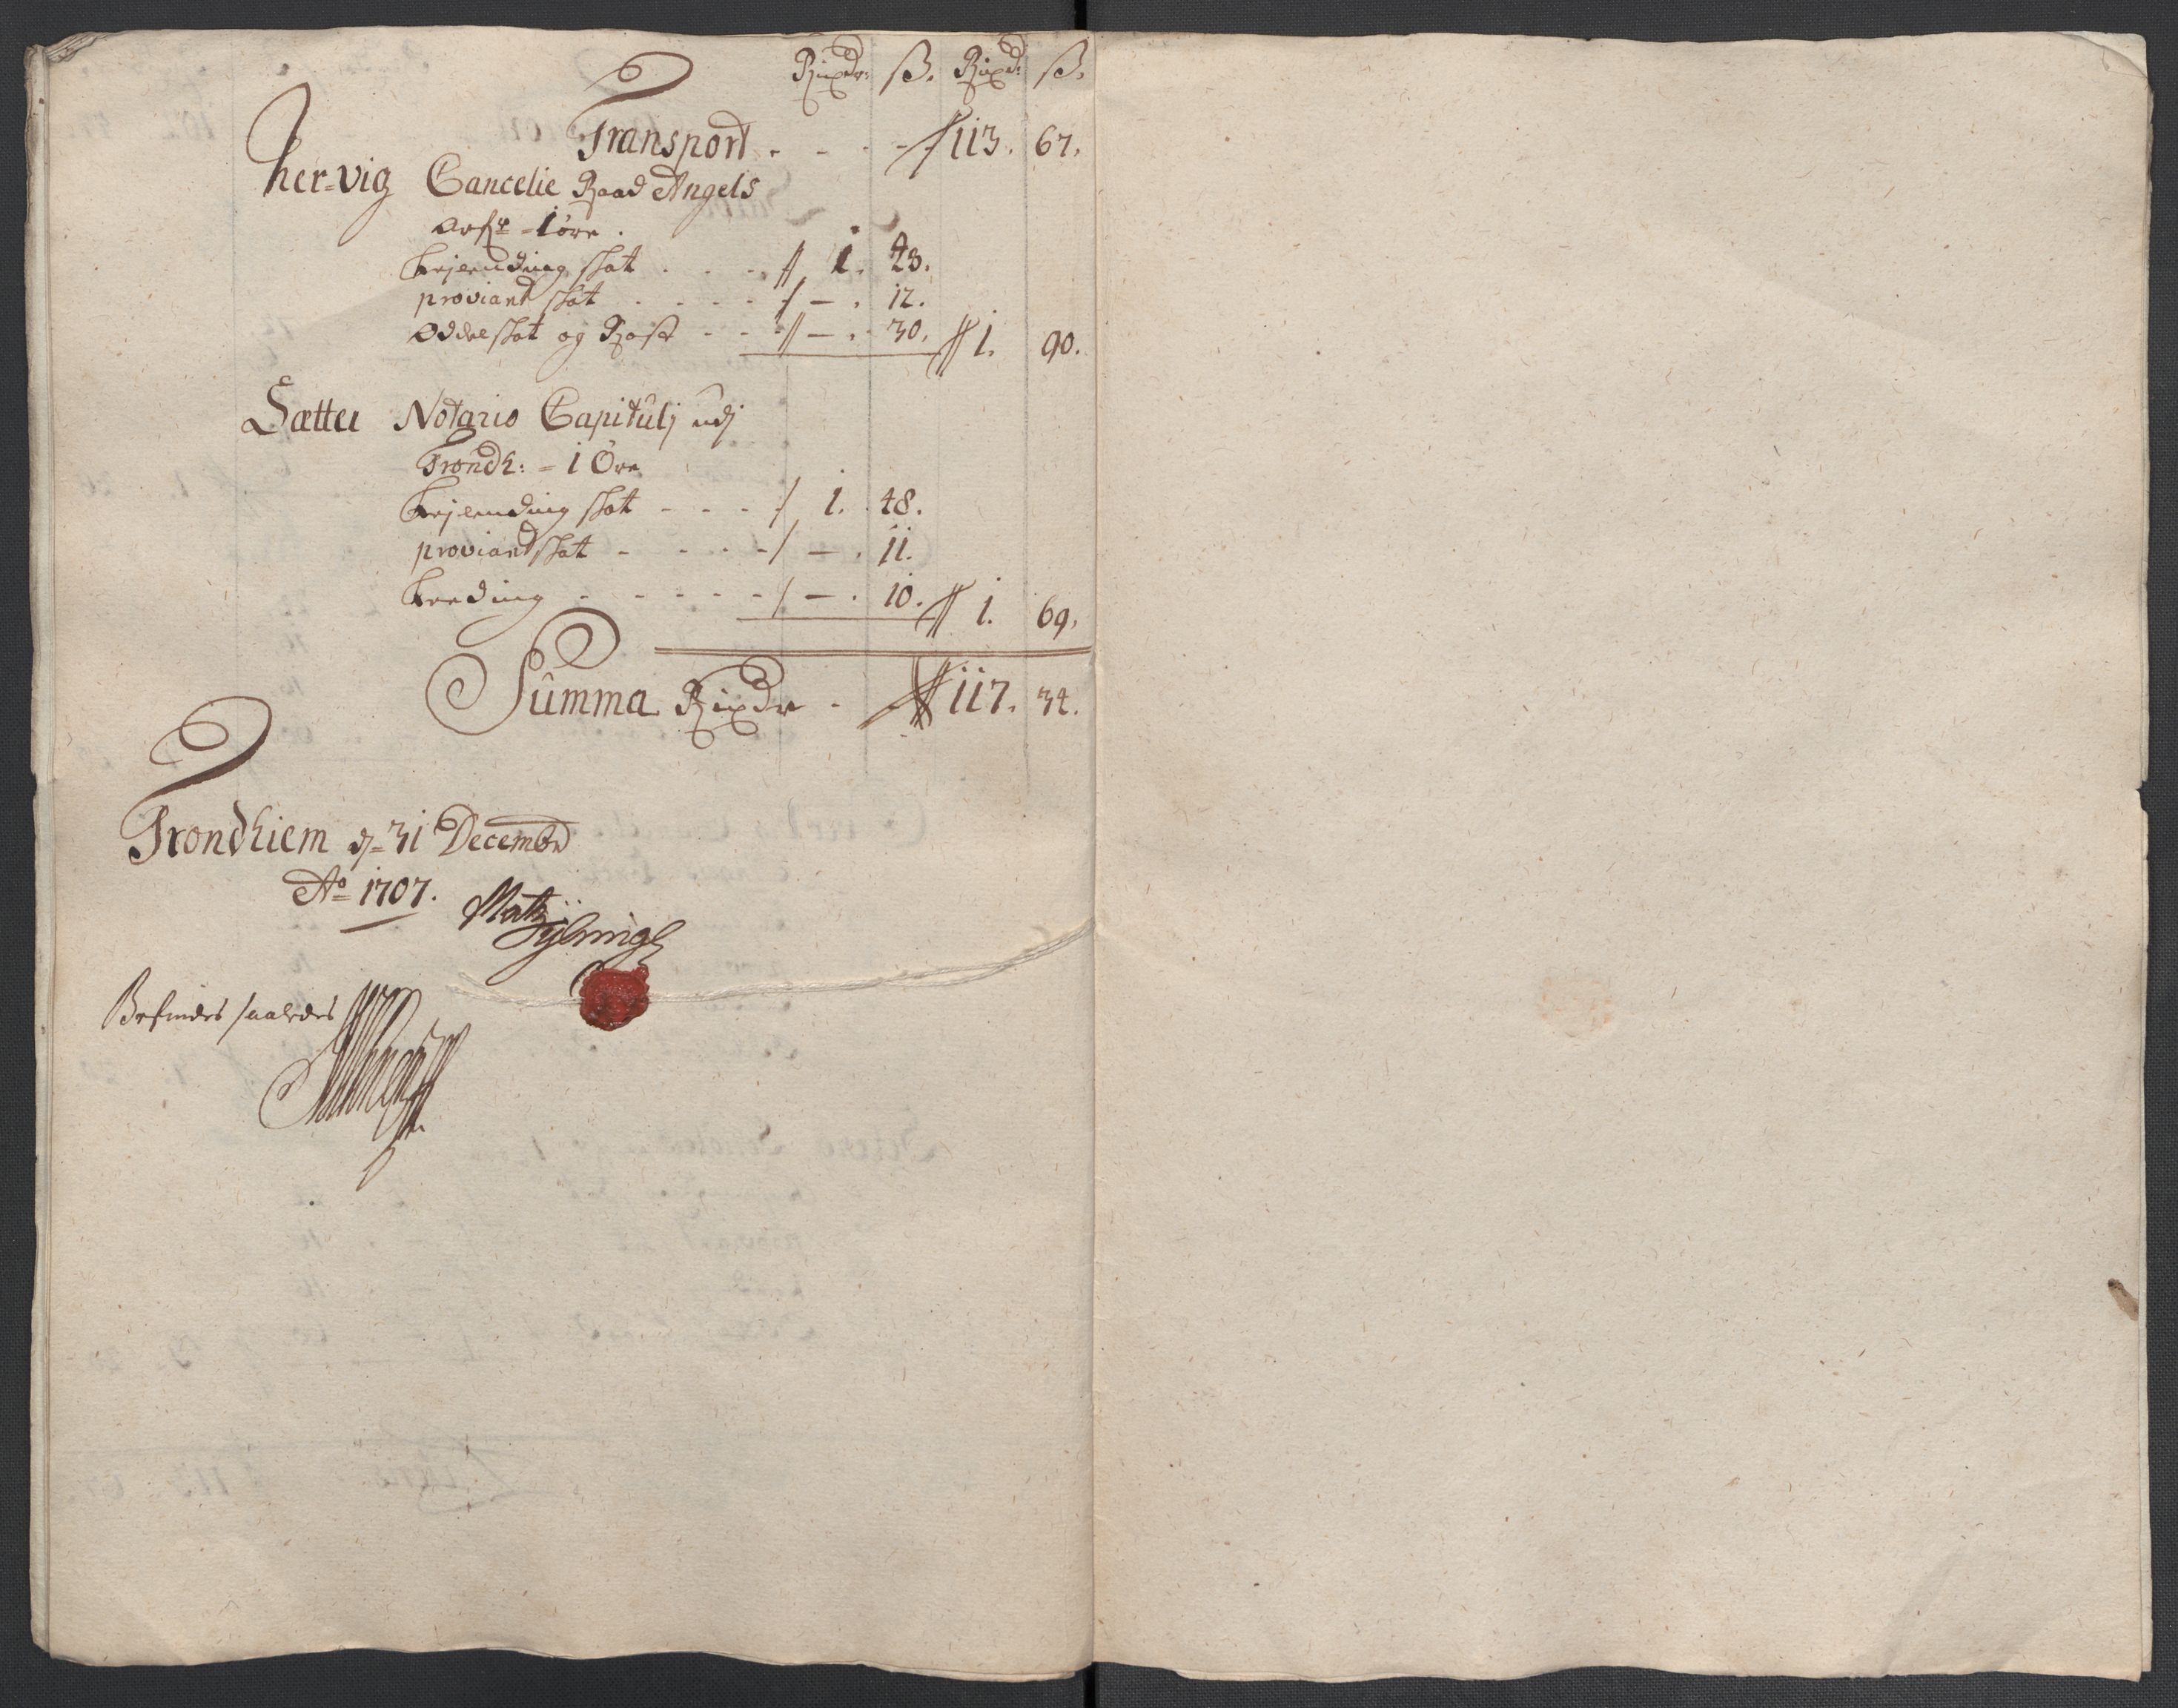 Rixdr: ß. Rixd: ß.
Transport . - . - 113. 67.
her-vig Cancelie Raad Angels
Arfr = 1 øre.
Leylending skat . . . 1. 43.
proviant skat . . . - . 12.
Oddelskat og Rost - - - . 30. 1. 90.
Sætter Notario Capitulj udj
Trondh: = 1 Øre
Leylending skat - - - 1. 48.
proviandskat - - . . - . 11.
Leeding - - - - - . 10. 1. 69.
Summa Rixdr - 117. 34.
Trondhiem d= 31 Decembr
Ao 1707.
Befindes saaledes